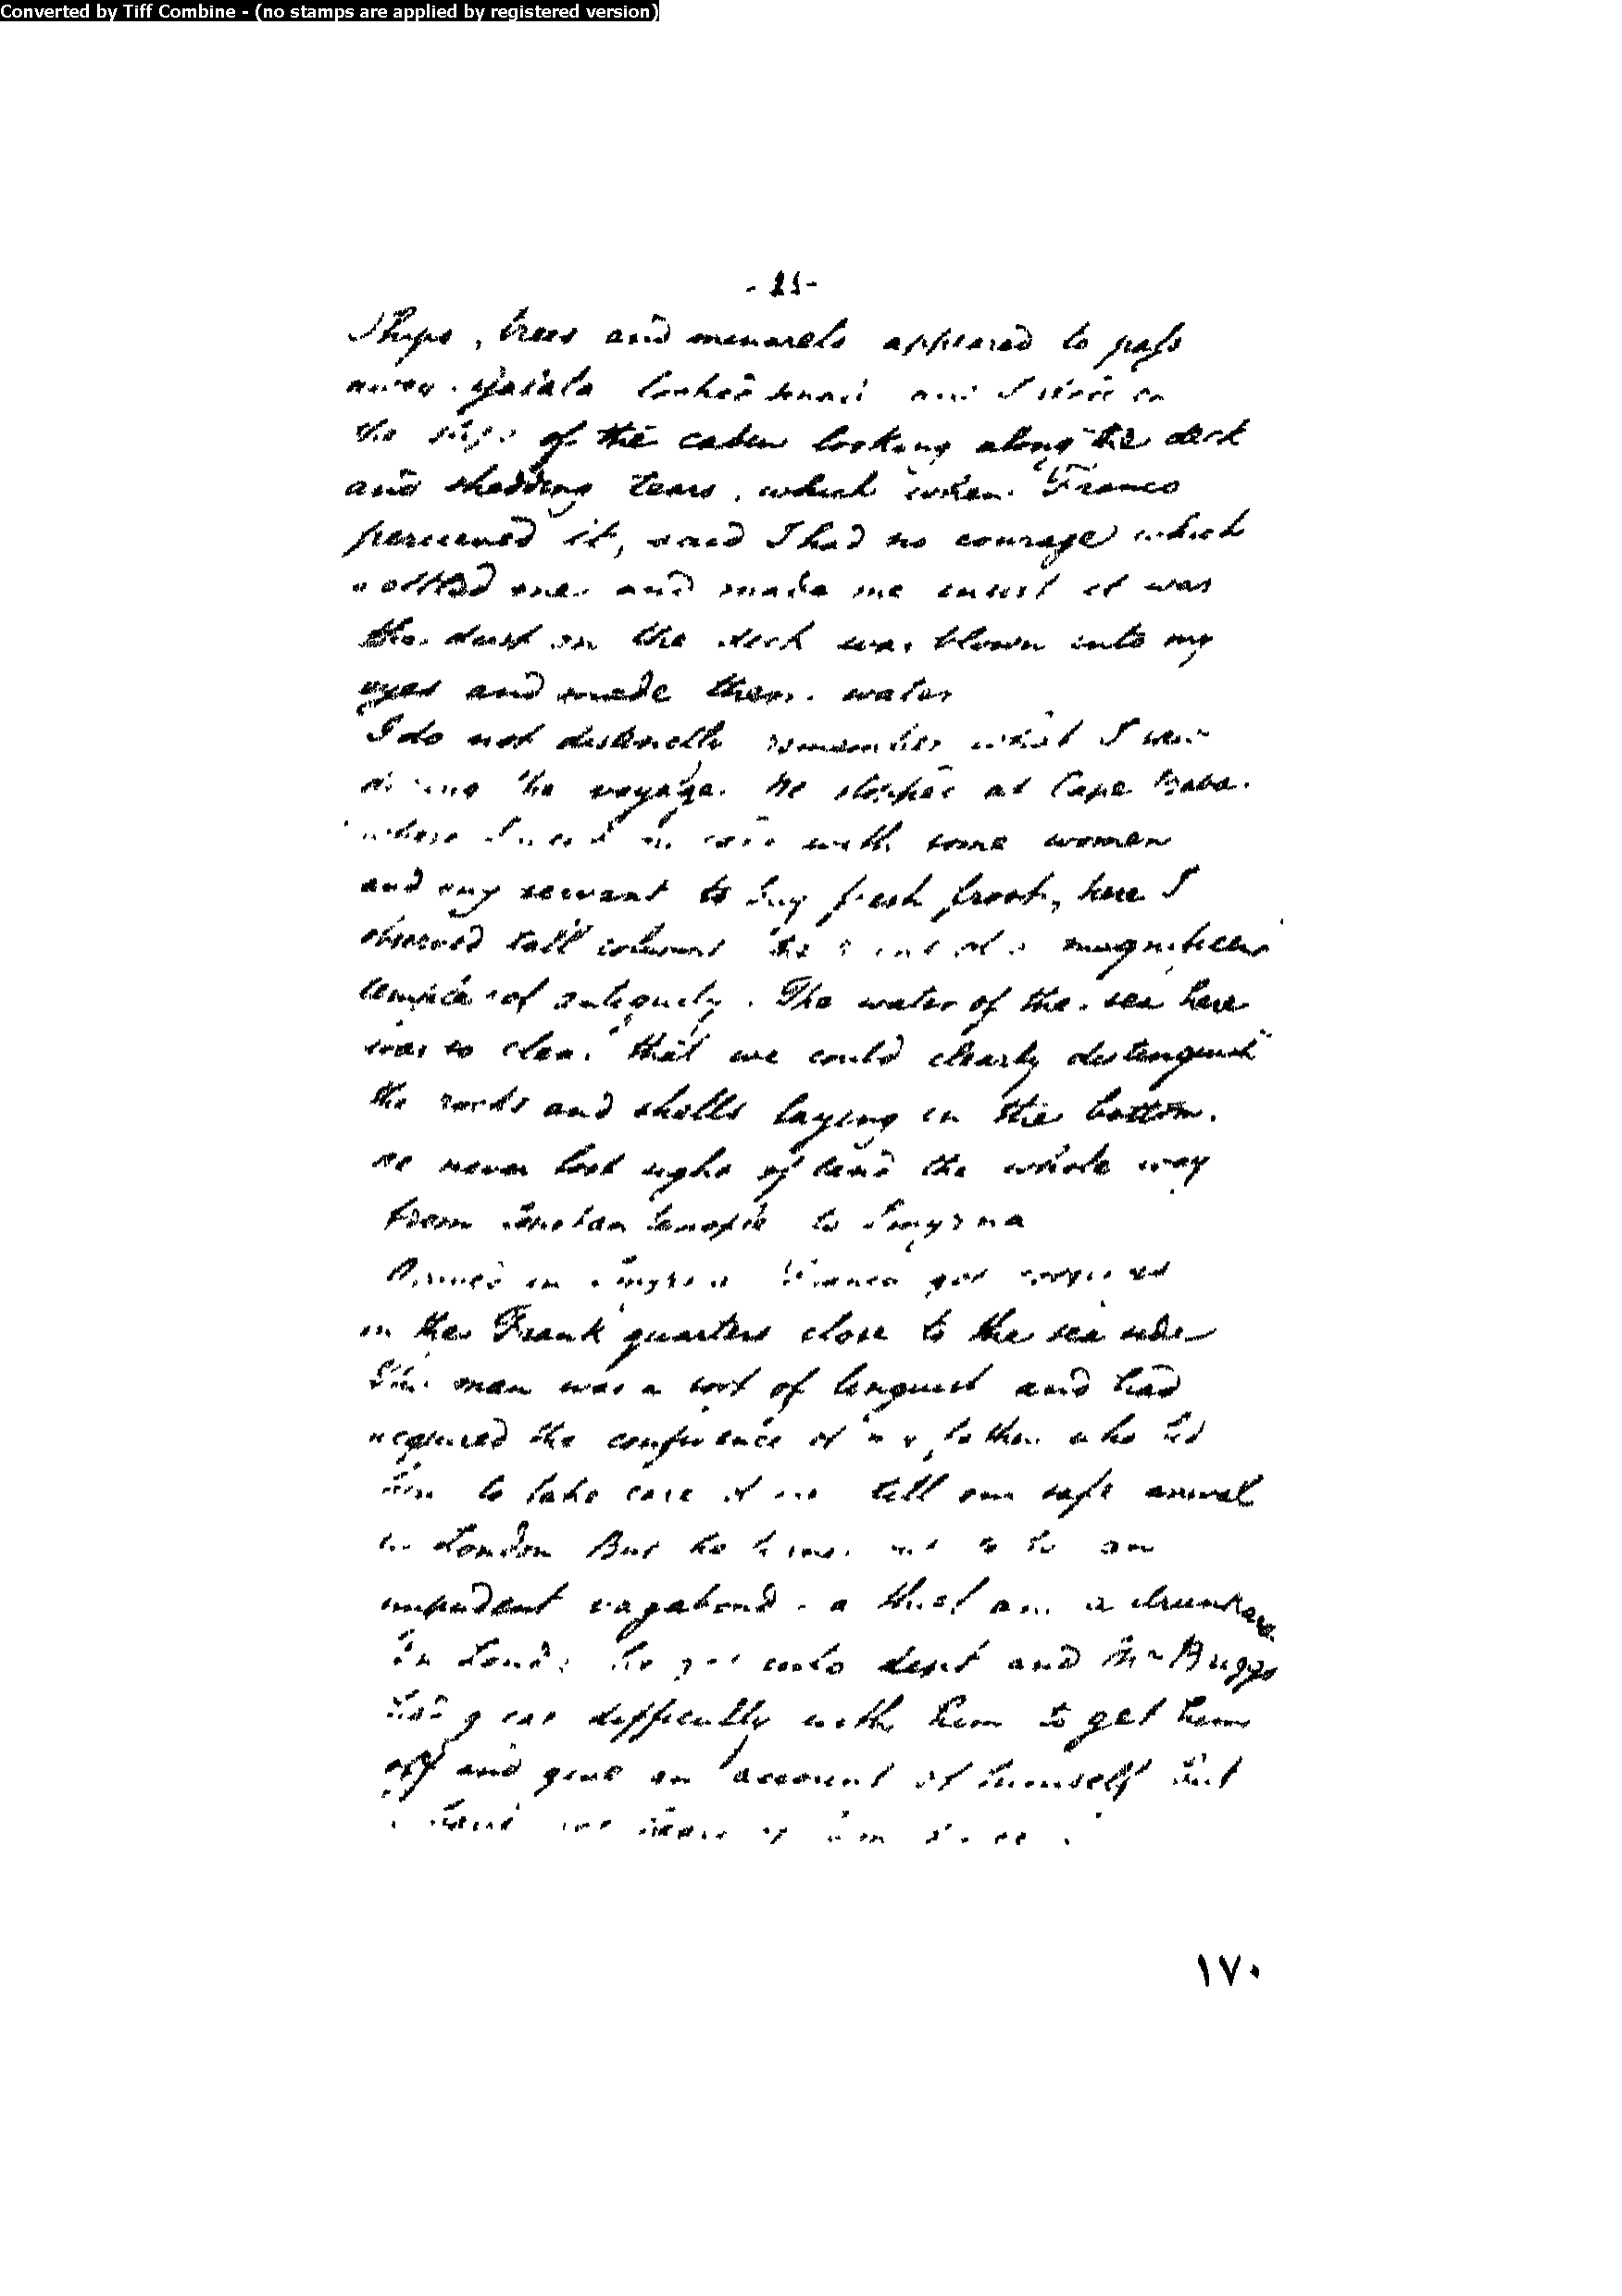 Converted by Tiff Combine - (no stamps are applied by registered version)
Ships, trees and menarets appeared to pass
away. Galata looked small and I stood on
the steps of the caben looking along the deck
and shedding tears, which when Franco
perceived it, said I had no courage which
nettled me and made me insist it was
the dust on the deck was blown into my
eyes and made them water
I do not distinctly remember what I saw
during the voyage. We stopped at Cape Baba.
where I went on with some women
and my servant to buy fresh froot, here I
observed tall columns the of a magnificent
temple of antiquety. The water of the sea here
was so clear that we could clearly destinguish
the rocks and shells laying in the bottom.
we never lost sight of land the whole way
from to Smyrna
Arrived in Smyrna Franco got
in the Frank quarters close to the sea side
This man was a sort of linguist and had
acquired the confidence of my father who
him to take care of me till our safe arrival
in London But he me to be an
impudent vagabond - a thief and a drunkard
In he got into debt and Mr Buggs
had great difficulty with him to get him
off and give an account of himself but
of him
١٧٠